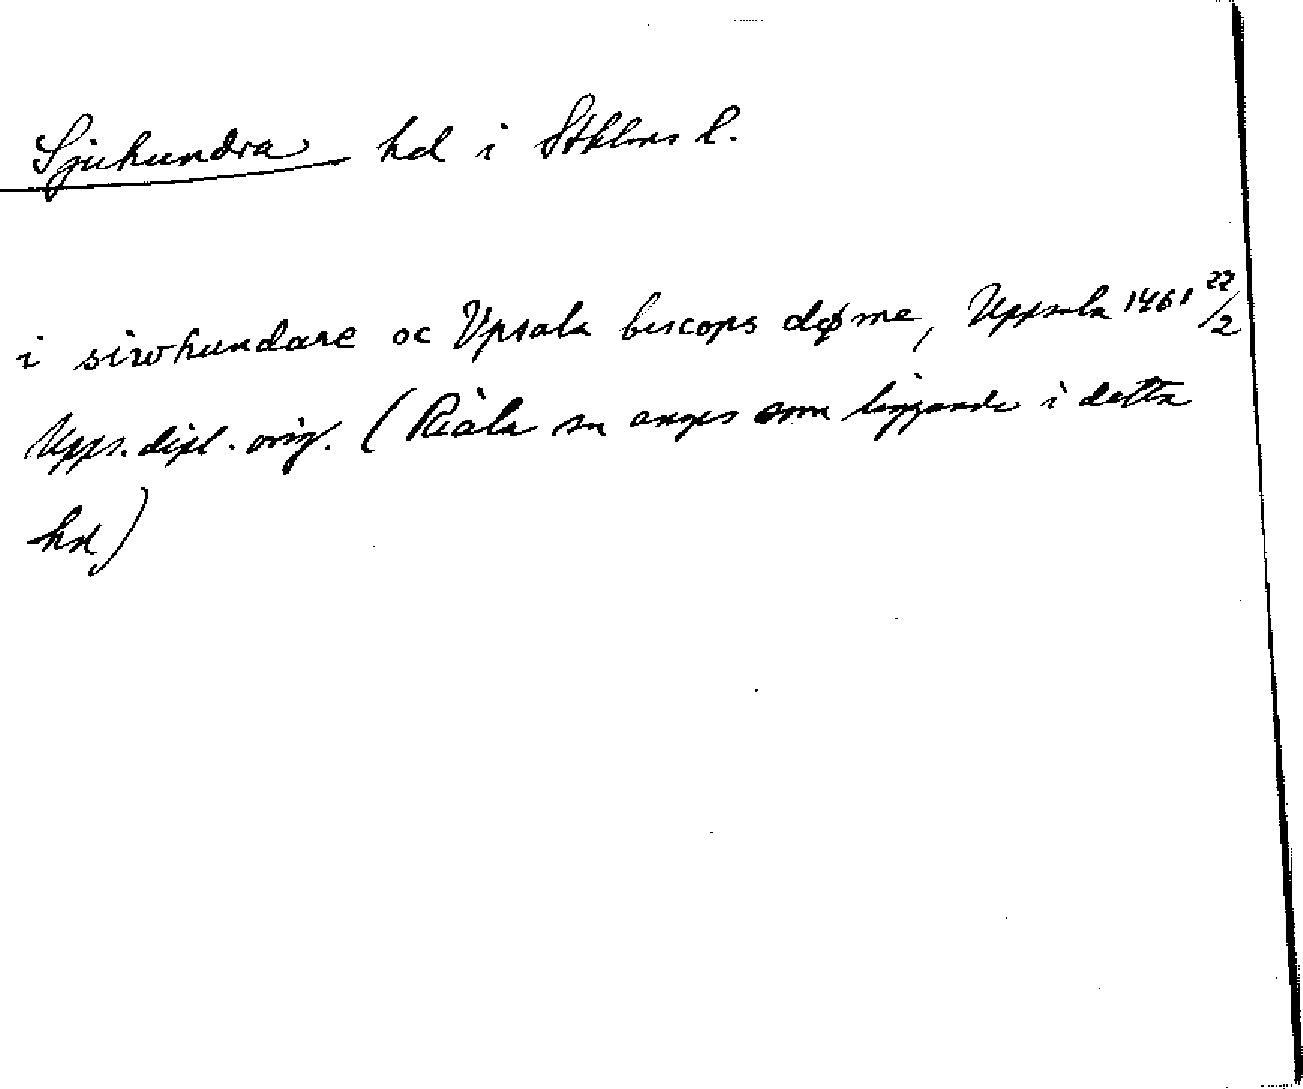 Sjuhundra hd i Sthlms l.
i siwhundare oc Vpsala biscops døme, Uppsala 1461 22/2
Upps. dipl. orig. (Riala sn anges som liggande i detta
hd)